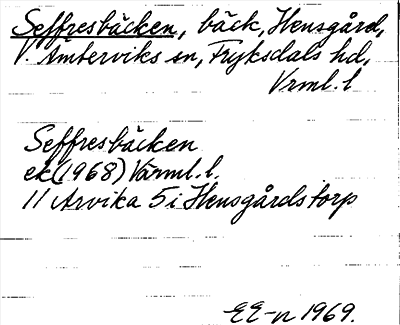 Seffresbäcken, bäck, Hensgård,
V. Ämterviks sn, Fryksdals hd,
Vrml. l
Seffresbäcken
ek (1968) Värml. l.
11 Arvika 5 i Hensgårdstorp
EE-n 1969.